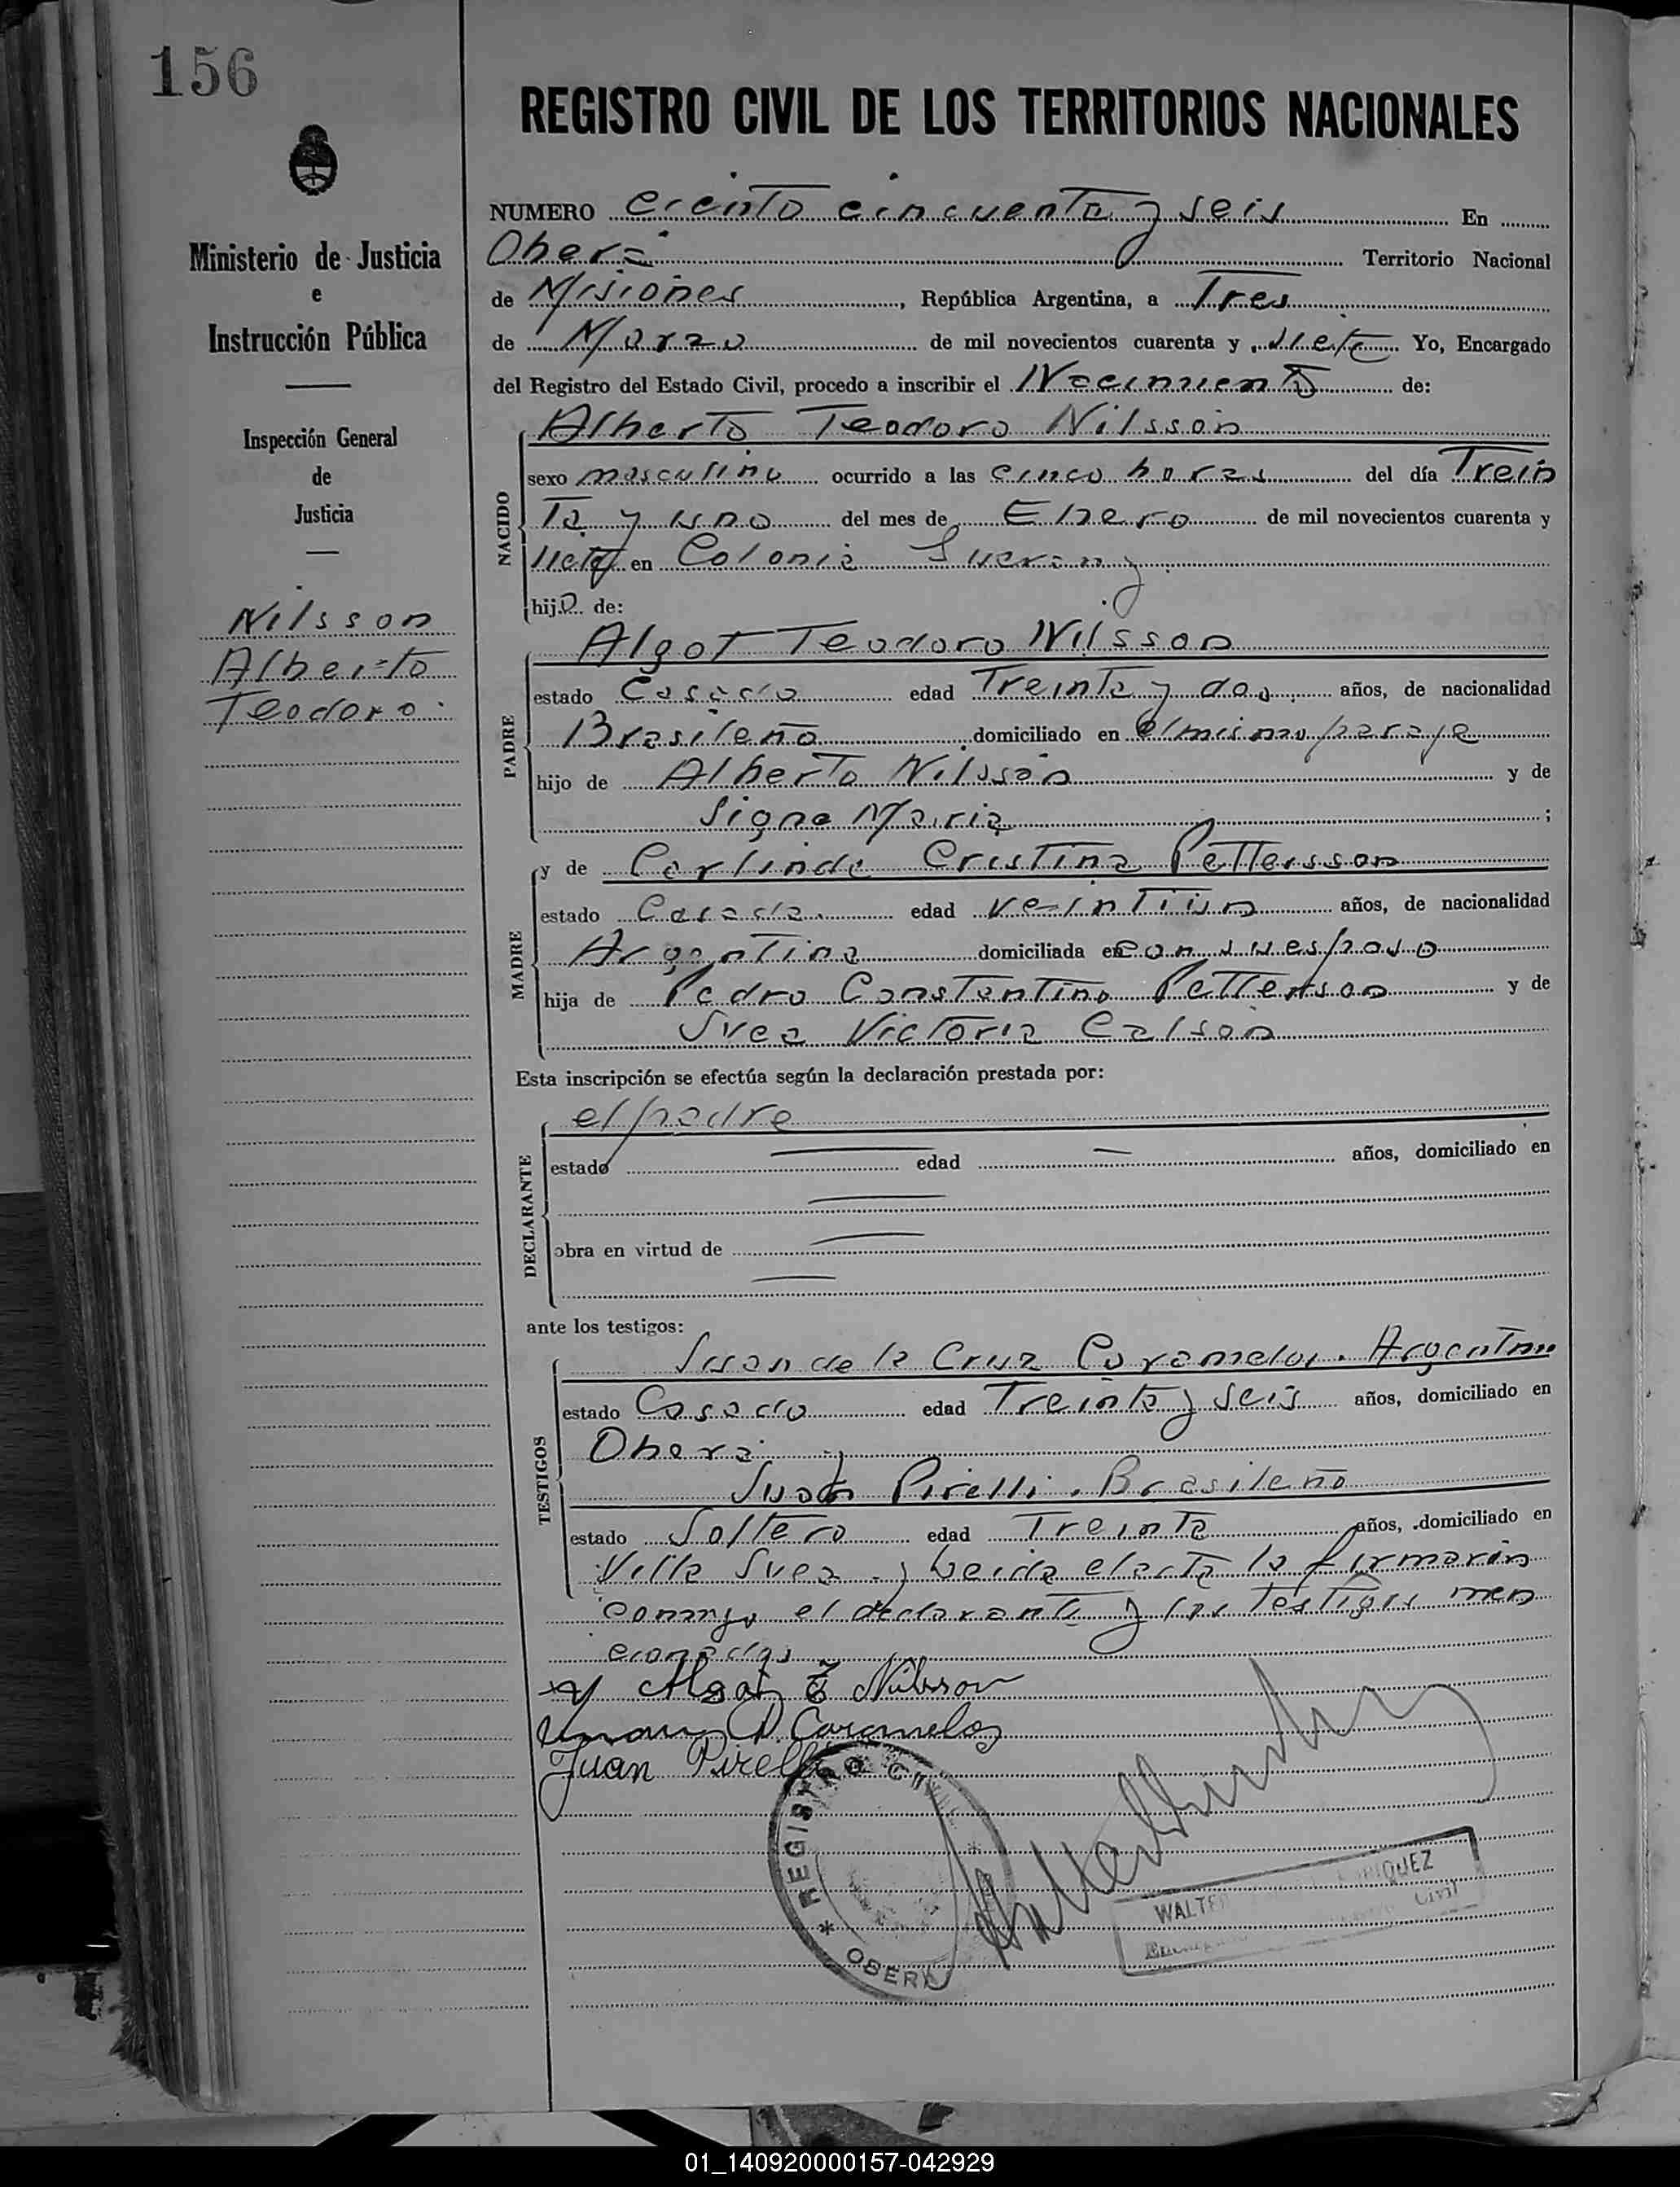 156
REGISTRO CIVIL DE LOS TERRITORIOS NACIONALES
Ministerio de Justicia
e
Instrucción Pública
Inspección General
de
Justicia
Nilsson
Alberto
Teodoro
NUMERO ciento cincuenta y seis En
Oberá Territorio Nacional
de Misiones, República Argentina, a Tres
de Marzo de mil novecientos cuarenta y siete Yo, Encargado
del Registro del Estado Civil, procedo a inscribir el Nacimiento de:
NACIDO
Alberto Teodoro Nilsson
sexo masculino ocurrido a las cinco horas del día Trein
Ta y uno del mes de Enero de mil novecientos cuarenta y
siete en Colonia
hijo de:
PADRE
Algot Teodoro Nilsson
estado Casado edad Treinta y dos años, de nacionalidad
Brasileño domiciliado en el mismo paraje
hijo de Alberto Nilsson y de
Signe Maria ;
MADRE
y de Cristina Pettersson
estado Casada edad veintiún años, de nacionalidad
Argentina domiciliada en con su esposo
hija de Pedro Constantino Petterson y de
Svea Victoria Calson
Esta inscripción se efectúa según la declaración prestada por:
DECLARANTE
el padre
estado edad años, domiciliado en
obra en virtud de
ante los testigos:
TESTIGOS
Juan de la Cruz Caramelos. Argentino
estado Casado edad Treinta y seis años, domiciliado en
Oberá y
Juan Pirelli. Brasileño
estado Soltero edad Treinta años, domiciliado en
Villa Svea y leida el acta la firmaron
conmigo el declarante y los testigos men
cionados
Algot T Nilsson
Caramelos
Juan Pirelli
* REGISTRO CIVIL *
OBERÁ
WALTER
Civil
01_140920000157-042929